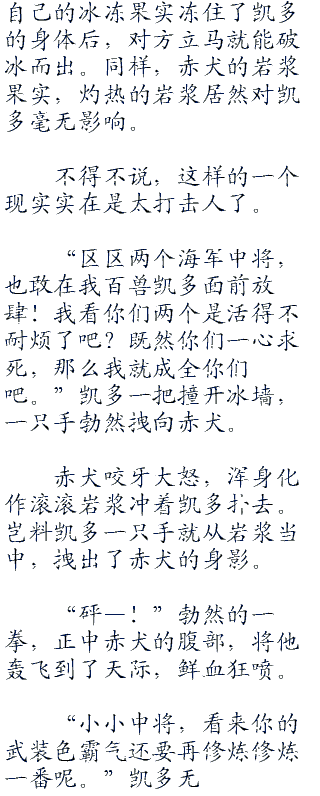 自己的冰冻果实冻住了凯多
的身体后，对方立马就能破
冰而出。同样，赤犬的岩浆
果实，灼热的岩浆居然对凯
多毫无影响。
不得不说，这样的一个
现实实在是太打击人了。
“区区两个海军中将，
也敢在我百兽凯多面前放
肆！我看你们两个是活得不
耐烦了吧？既然你们一心求
死，那么我就成全你们
吧。”凯多一把撞开冰墙，
一只手勃然拽向赤犬。
赤犬咬牙大怒，浑身化
作滚滚岩浆冲着凯多扑去。
岂料凯多一只手就从岩浆当
中，拽出了赤犬的身影。
“砰—！”勃然的一
拳，正中赤犬的腹部，将他
轰飞到了天际，鲜血狂喷。
“小小中将，看来你的
武装色霸气还要再修炼修炼
一番呢。”凯多无